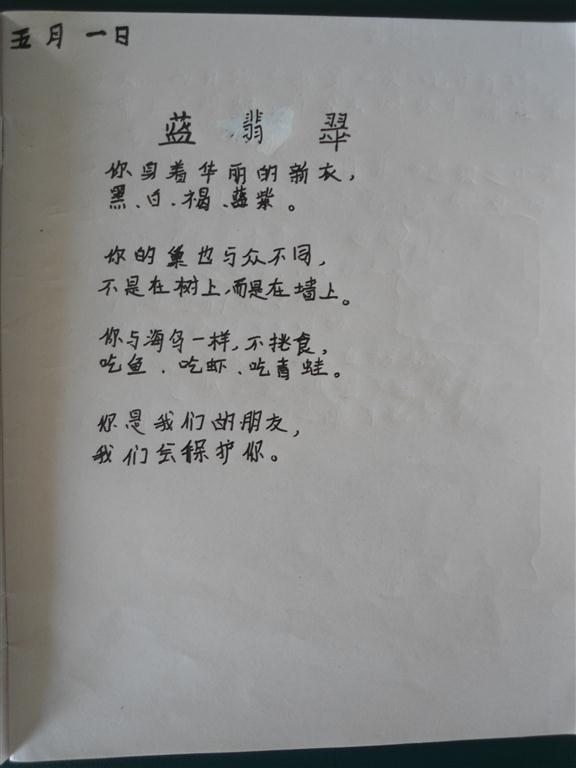 五月一日
蓝翡翠
你身着华丽的新衣，
黑、白、褐、蓝紫。
你的巢也与众不同，
不是在树上，而是在墙上。
你与海鸟一样，不挑食，
吃鱼、吃虾、吃青蛙。
你是我们的朋友，
我们会保护你。